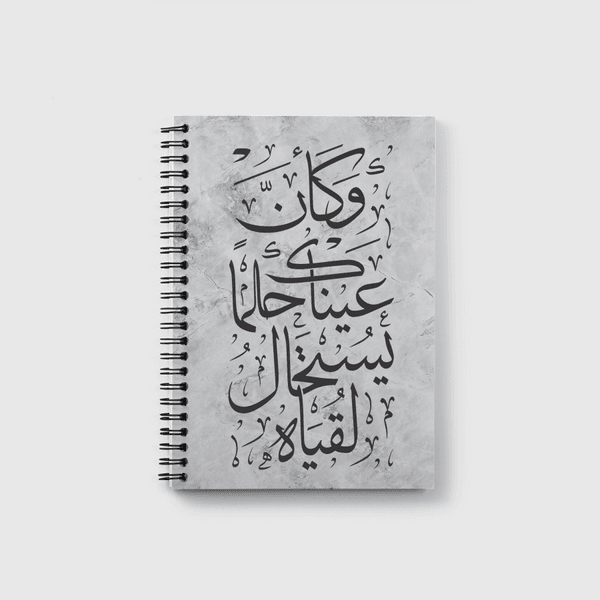 وَكَأَنَّ
عيناكَ حُلْمًا
يُسْتَحَال
لُقْيَاه